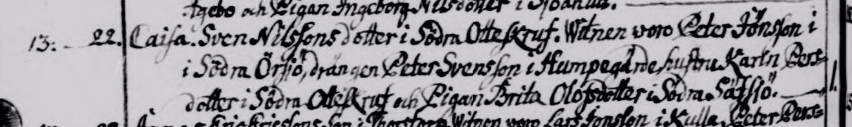 Agebo och Pigan Ingeborg Nilsdotter i Sjöanäs.
13. 22. Caisa. Sven Nilssons dotter i Södra Otteskruf. Witnen woro Peter Jönsson i
i Södra Örsjö, drängen Peter Svensson i Humpegärde, hustru Karin Pers=
dotter i Södra Otteskruf och Pigan Brita Olofsdotter i Södra Säfsjö. 1.
Witnen woro Lars Jonsson i Kulla, Peter Pers=